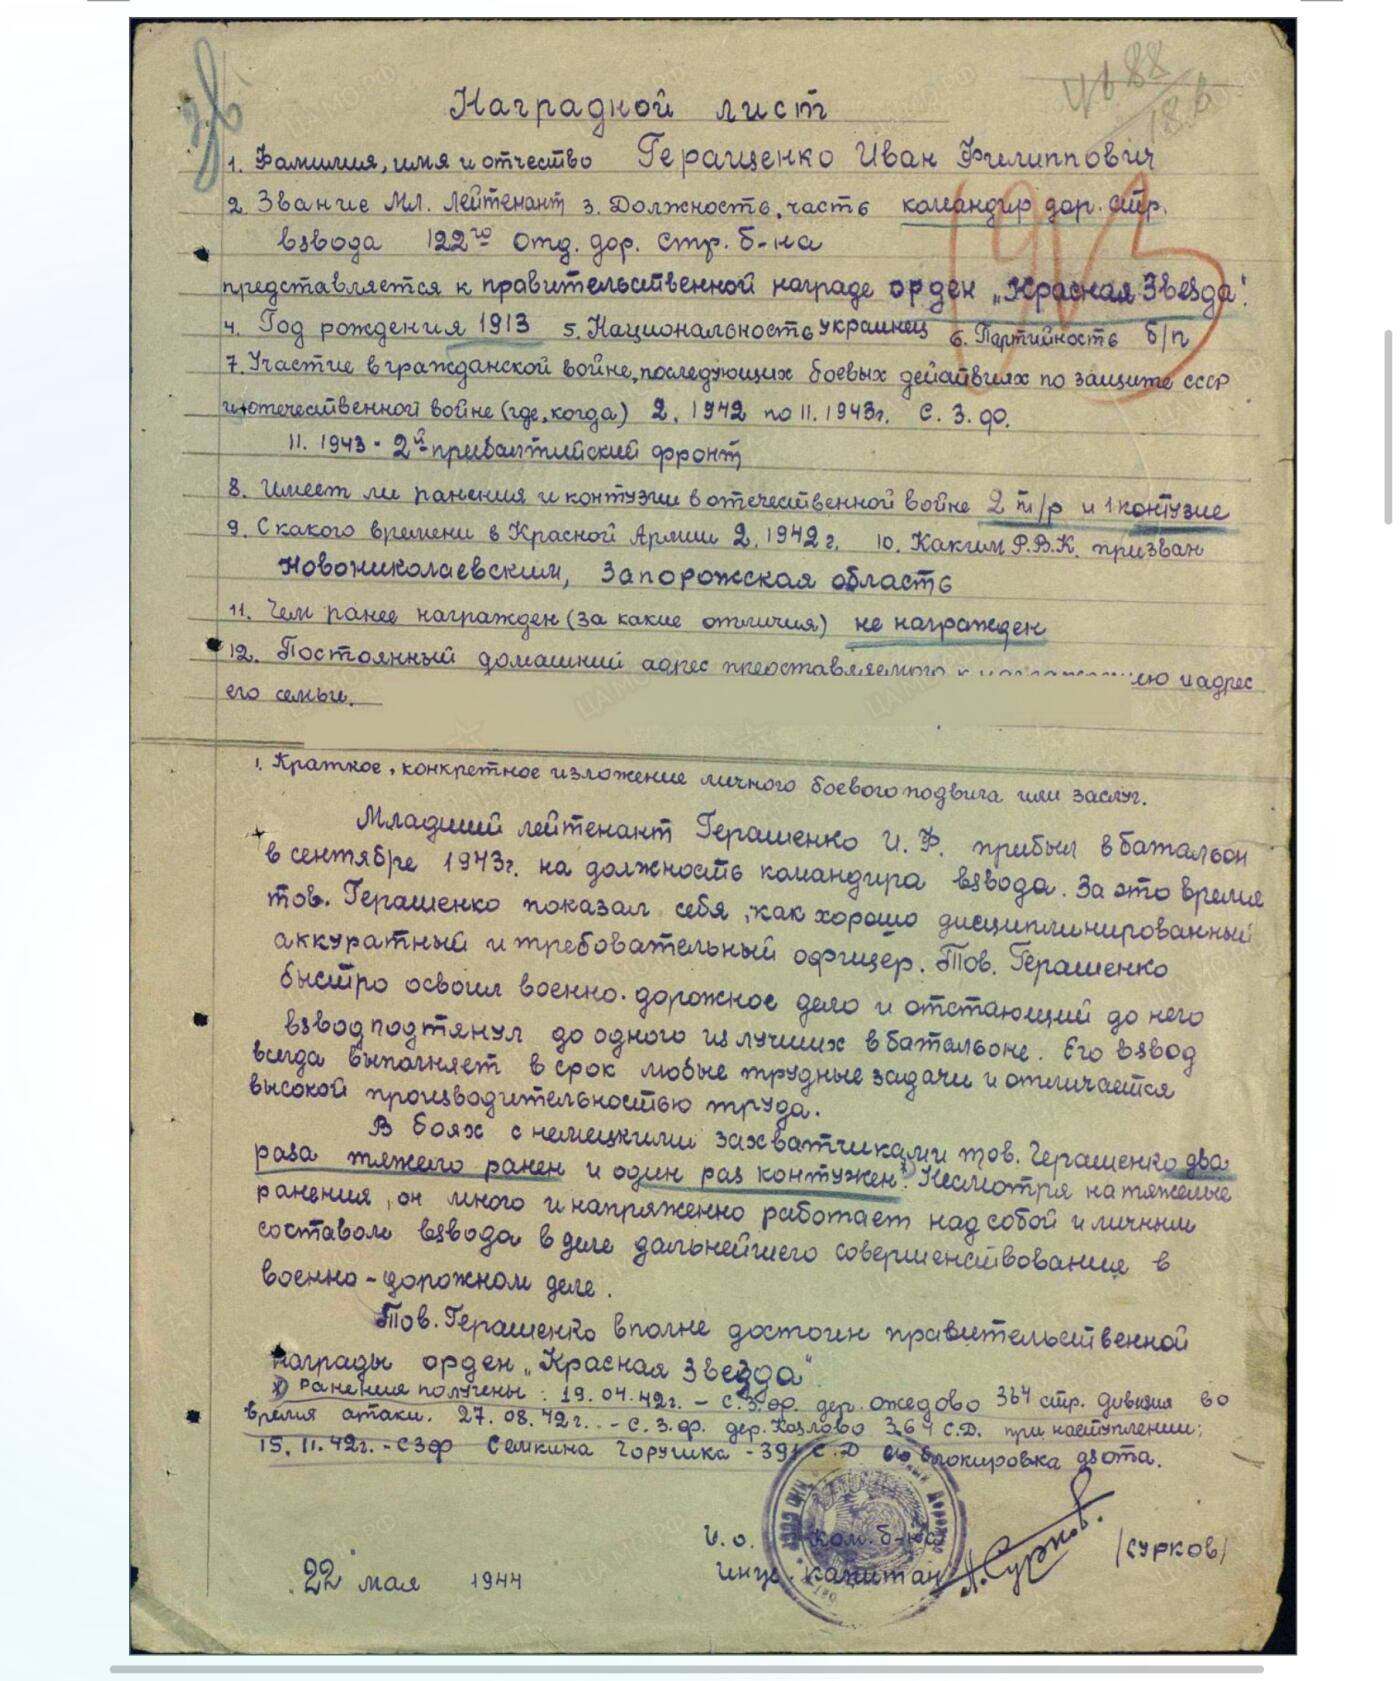 Наградной лист
1. Фамилия, имя и отчество Геращенко Иван Филиппович
2. Звание Мл. лейтенант 3. Должность, часть командир дор. стр.
взвода 122го отд. дор. стр. б-на
представляется к правительственной награде орден „Красная Звезда".
4. Год рождения 1913 5. Национальность украинец 6. Партийность б/п
7. Участие в гражданской войне, последующих боевых действиях по защите СССР
и отечественной войне (где, когда) 2. 1942 по 11. 1943г. С. З. ф.
11. 1943 - 2й прибалтийский фронт
8. Имеет ли ранения и контузии в отечественной войне 2 т/р и 1 контузие
9. С какого времени в Красной Армии 2. 1942 г. 10. Каким Р.В.К. призван
Новониколаевским, Запорожская область
11. Чем ранее награжден (за какие отличия) не награжден
12. Постоянный домашний адрес представляемого к и адрес
его семьи.
1. Краткое, конкретное изложение личного боевого подвига или заслуг.
Младший лейтенант Герашенко И. Ф. прибыл в батальон
в сентябре 1943г. на должность командира взвода. За это время
тов. Герашенко показал себя, как хорошо дисциплинированный
аккуратный и требовательный офицер. Тов. Герашенко
быстро освоил военно-дорожное дело и отстающий до него
взвод подтянул до одного из лучших в батальоне. Его взвод
всегда выполняет в срок любые трудные задачи и отличается
высокой производительностью труда.
В боях с немецкими захватчиками тов. Герашенко два
раза тяжело ранен и один раз контужен. Несмотря на тяжелые
ранения, он много и напряженно работает над собой и личным
составом взвода в деле дальнейшего совершенствования в
военно-дорожном деле.
Тов. Герашенко вполне достоин правительственной
награды орден „Красная Звезда"
х) Ранения получены: 19. 04. 42г. - С. З. ф. дер. Ожедово 364 стр. дивизия во
время атаки. 27. 08. 42г. - С. З. ф. дер. Козлово 364 С.Д. при наступлении;
15. 11. 42г. - СЗФ Семкина Горушка - 391 С. Д блокировка дзота.
И. о. Ком. б-на
Инж. капитан А. Сурков. /Сурков/
22 мая 1944